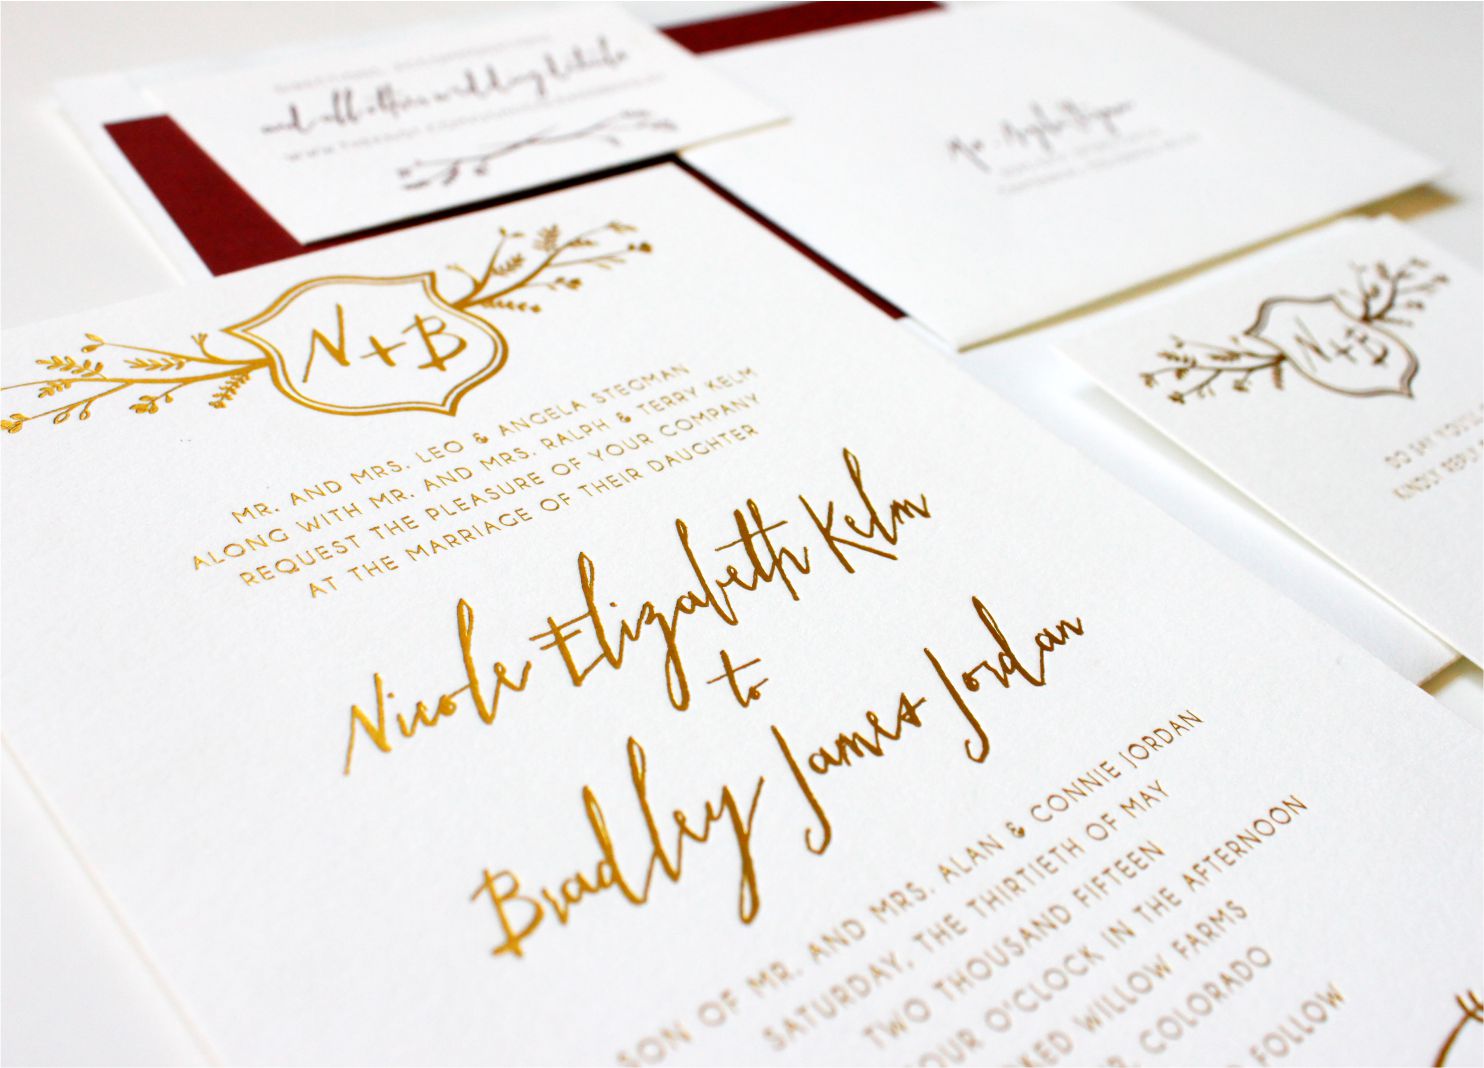 and all other wedding details
N + B
MR. AND MRS. LEO & ANGELA STEGMAN
ALONG WITH MR. AND MRS. RALPH & TERRY KELM
REQUEST THE PLEASURE OF YOUR COMPANY
AT THE MARRIAGE OF THEIR DAUGHTER
Nicole Elizabeth Kelm
to
Bradley James Jordan
SON OF MR. AND MRS. ALAN & CONNIE JORDAN
SATURDAY, THE THIRTIETH OF MAY
TWO THOUSAND FIFTEEN
O'CLOCK IN THE AFTERNOON
WILLOW FARMS
COLORADO
FOLLOW
N + B
KINDLY REPLY